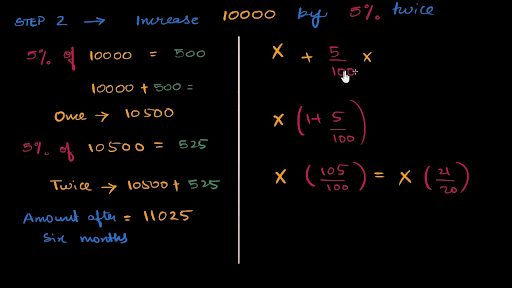 STEP 2 → Increase 10000 by 5% twice
5% of 10000 = 500
10000 + 500 =
Once → 10500
5% of 10500 = 525
Twice → 10500 + 525
Amount after = 11025
six months
x + 5/100 x
x (1+ 5/100)
x (105/100) = x (21/20)